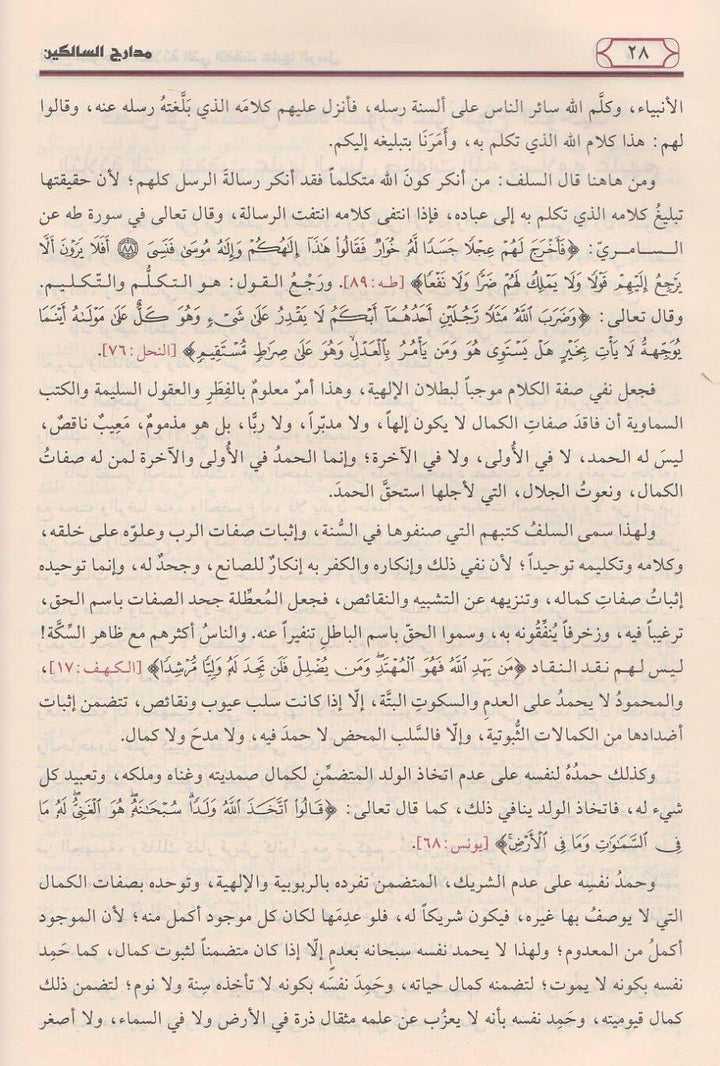 ٢٨
مدارج السالكين
الأنبياء، وكلَّم الله سائر الناس على ألسنة رسله، فأنزل عليهم كلامَه الذي بَلَّغتهُ رسله عنه، وقالوا
لهم: هذا كلام الله الذي تكلم به، وأَمَرَنَا بتبليغه إليكم.
ومن هاهنا قال السلف: من أنكر كونَ الله متكلماً فقد أنكر رسالةَ الرسل كلهم؛ لأن حقيقتها
تبليغُ كلامه الذي تكلم به إلى عباده، فإذا انتفى كلامه انتفت الرسالة، وقال تعالى في سورة طه عن
السـامريّ: ﴿فَأَخْرَجَ لَهُمْ عِجْلًا جَسَدًا لَّهُ خُوَارٌ فَقَالُوا هَٰذَا إِلَٰهُكُمْ وَإِلَٰهُ مُوسَىٰ فَنَسِىَ ۝٨٨ أَفَلَا يَرَوْنَ أَلَّا
يَرْجِعُ إِلَيْهِمْ قَوْلًا وَلَا يَمْلِكُ لَهُمْ ضَرًّا وَلَا نَفْعًا﴾ [طه:٨٩]. ورَجْعُ القول: هو التكلُّم والتَّكليم.
وقال تعالى: ﴿وَضَرَبَ ٱللَّهُ مَثَلًا رَّجُلَيْنِ أَحَدُهُمَآ أَبْكَمُ لَا يَقْدِرُ عَلَىٰ شَىْءٍ وَهُوَ كَلٌّ عَلَىٰ مَوْلَىٰهُ أَيْنَمَا
يُوَجِّههُّ لَا يَأْتِ بِخَيْرٍ هَلْ يَسْتَوِى هُوَ وَمَن يَأْمُرُ بِٱلْعَدْلِ وَهُوَ عَلَىٰ صِرَٰطٍ مُّسْتَقِيمٍ﴾ [النحل:٧٦].
فجعل نفي صفة الكلام موجباً لبطلان الإلهية، وهذا أمرٌ معلومٌ بالفِطَرِ والعقول السليمة والكتب
السماوية أن فاقدَ صفاتِ الكمال لا يكون إلهاً، ولا مدبّراً، ولا ربًّا، بل هو مذمومٌ، مَعِيبٌ ناقصٌ،
ليسَ له الحمد، لا في الأُولى، ولا في الآخرة؛ وإنما الحمدُ في الأُولى والآخرة لمن له صفاتُ
الكمال، ونعوتُ الجلال، التي لأجلها استحقَّ الحمدَ.
ولهذا سمى السلفُ كتبهم التي صنفوها في السُّنة، وإثبات صفات الرب وعلوّه على خلقه،
وكلامه وتكليمه توحيداً؛ لأن نفي ذلك وإنكاره والكفر به إنكارٌ للصانع، وجحدٌ له، وإنما توحيده
إثباتُ صفاتِ كماله، وتنزيهه عن التشبيه والنقائص، فجعل المُعطِّلة جحد الصفات باسم الحق،
ترغيباً فيه، وزخرفاً يُنفِّقُونه به، وسموا الحقّ باسم الباطلِ تنفيراً عنه. والناسُ أكثرهم مع ظاهر السِّكَّة!
ليس لهم نقد النقاد ﴿مَن يَهْدِ ٱللَّهُ فَهُوَ ٱلْمُهْتَدِ وَمَن يُضْلِلْ فَلَن تَجِدَ لَهُ وَلِيًّا مُّرْشِدًا﴾ [الكهف:١٧]،
والمحمودُ لا يحمدُ على العدمِ والسكوتِ البتَّة، إلَّا إذا كانت سلب عيوب ونقائص، تتضمن إثبات
أضدادها من الكمالات الثُّبوتية، وإلَّا فالسَّلب المحض لا حمدَ فيه، ولا مدحَ ولا كمال.
وكذلك حمدُهُ لنفسه على عدم اتخاذ الولد المتضمِّنِ لكمال صمديته وغناه وملكه، وتعبيد كل
شيء له، فاتخاذ الولد ينافي ذلك، كما قال تعالى: ﴿قَالُوا ٱتَّخَذَ ٱللَّهُ وَلَدًا سُبْحَٰنَهُ هُوَ ٱلْغَنِىُّ لَهُ مَا
فِى ٱلسَّمَٰوَٰتِ وَمَا فِى ٱلْأَرْضِ﴾ [يونس:٦٨].
وحمدُ نفسِه على عدم الشريك، المتضمن تفرده بالربوبية والإلهية، وتوحده بصفات الكمال
التي لا يوصفُ بها غيره، فيكون شريكاً له، فلو عدِمَها لكان كل موجود أكمل منه؛ لأن الموجود
أكملُ من المعدوم؛ ولهذا لا يحمد نفسه سبحانه بعدمٍ إلَّا إذا كان متضمناً لثبوت كمال، كما حَمِد
نفسه بكونه لا يموت؛ لتضمنه كمال حياته، وحَمِدَ نفسَه بكونه لا تأخذه سِنة ولا نوم؛ لتضمن ذلك
كمال قيوميته، وحَمِد نفسه بأنه لا يعزُب عن علمه مثقال ذرة في الأرض ولا في السماء، ولا أصغر